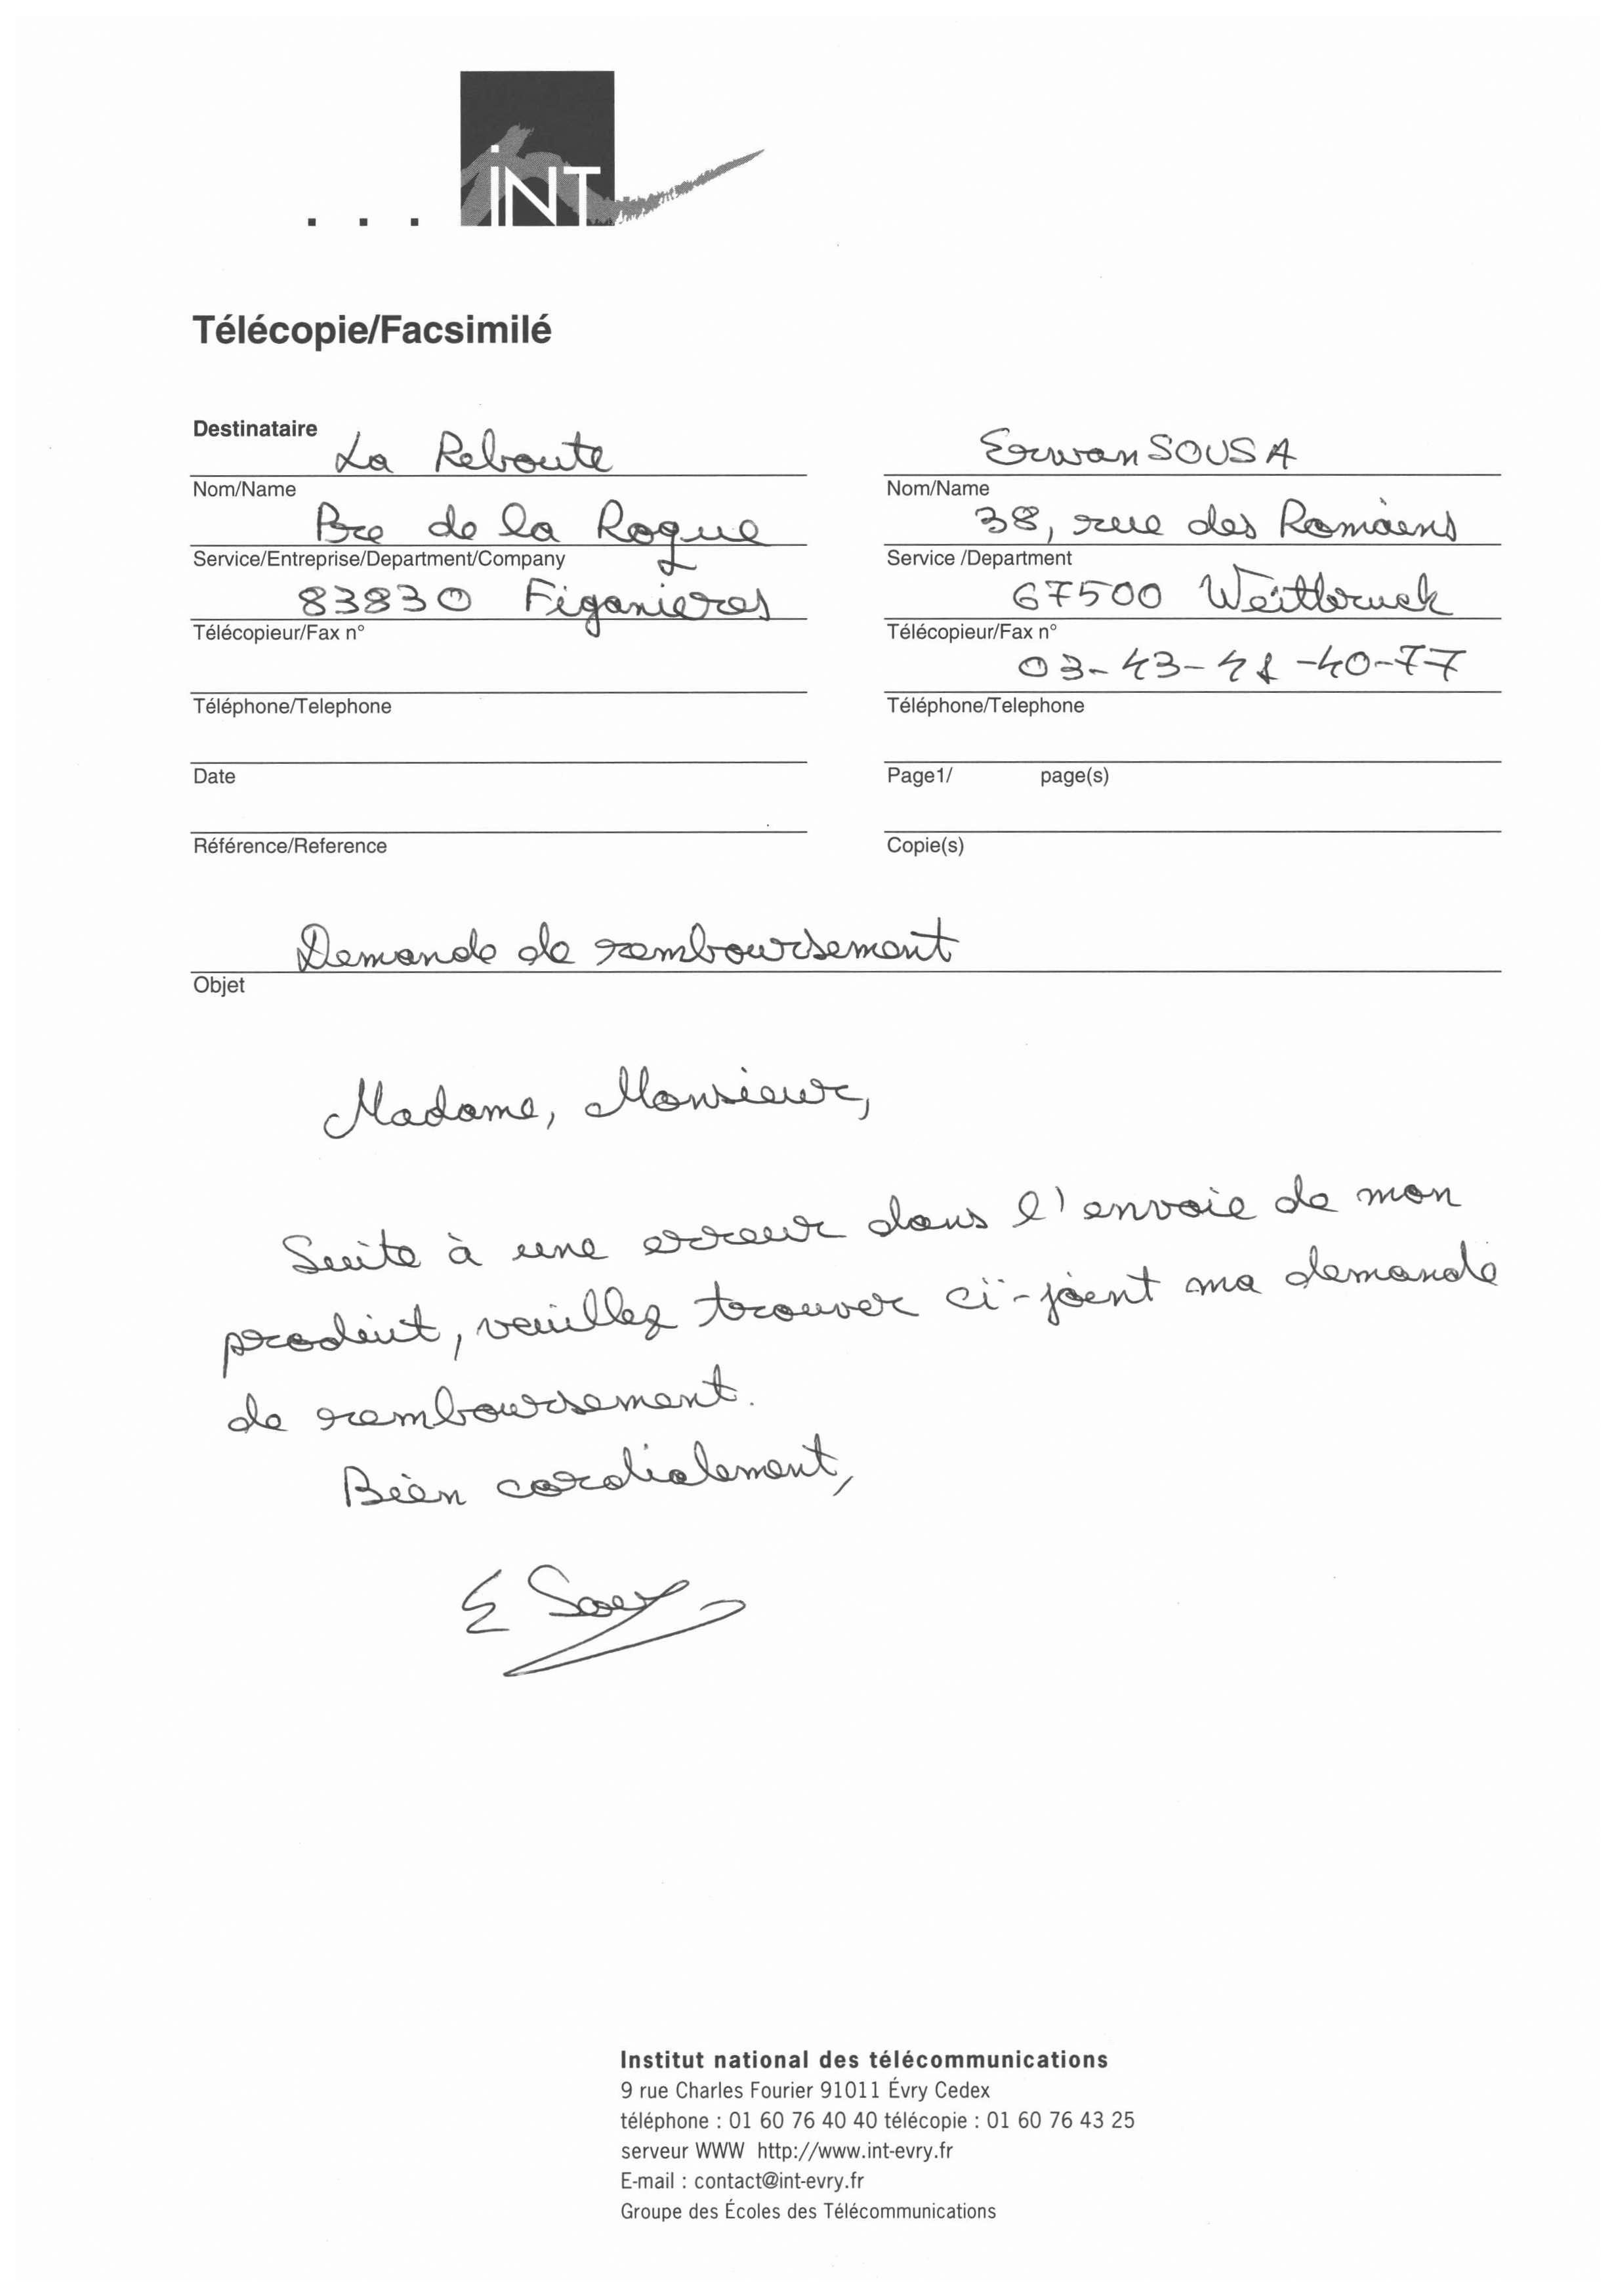 ... iNT
Télécopie/Facsimilé
Destinataire
La Reboute
Nom/Name
Bre de la Roque
Service/Entreprise/Department/Company
83830 Figanieres
Télécopieur/Fax n°
Téléphone/Telephone
Date
Référence/Reference
Erwan SOUSA
Nom/Name
38, rue des Romains
Service /Department
67500 Weitbruck
Télécopieur/Fax n°
03-43-41-40-77
Téléphone/Telephone
Page1/ page(s)
Copie(s)
Demande de remboursement
Objet
Madame, Monsieur,
Suite à une erreur dans l'envoie de mon
produit, veuillez trouver ci-joint ma demande
de remboursement.
Bien cordialement,
E Sou
Institut national des télécommunications
9 rue Charles Fourier 91011 Évry Cedex
téléphone : 01 60 76 40 40 télécopie : 01 60 76 43 25
serveur WWW http://www.int-evry.fr
E-mail : contact@int-evry.fr
Groupe des Écoles des Télécommunications